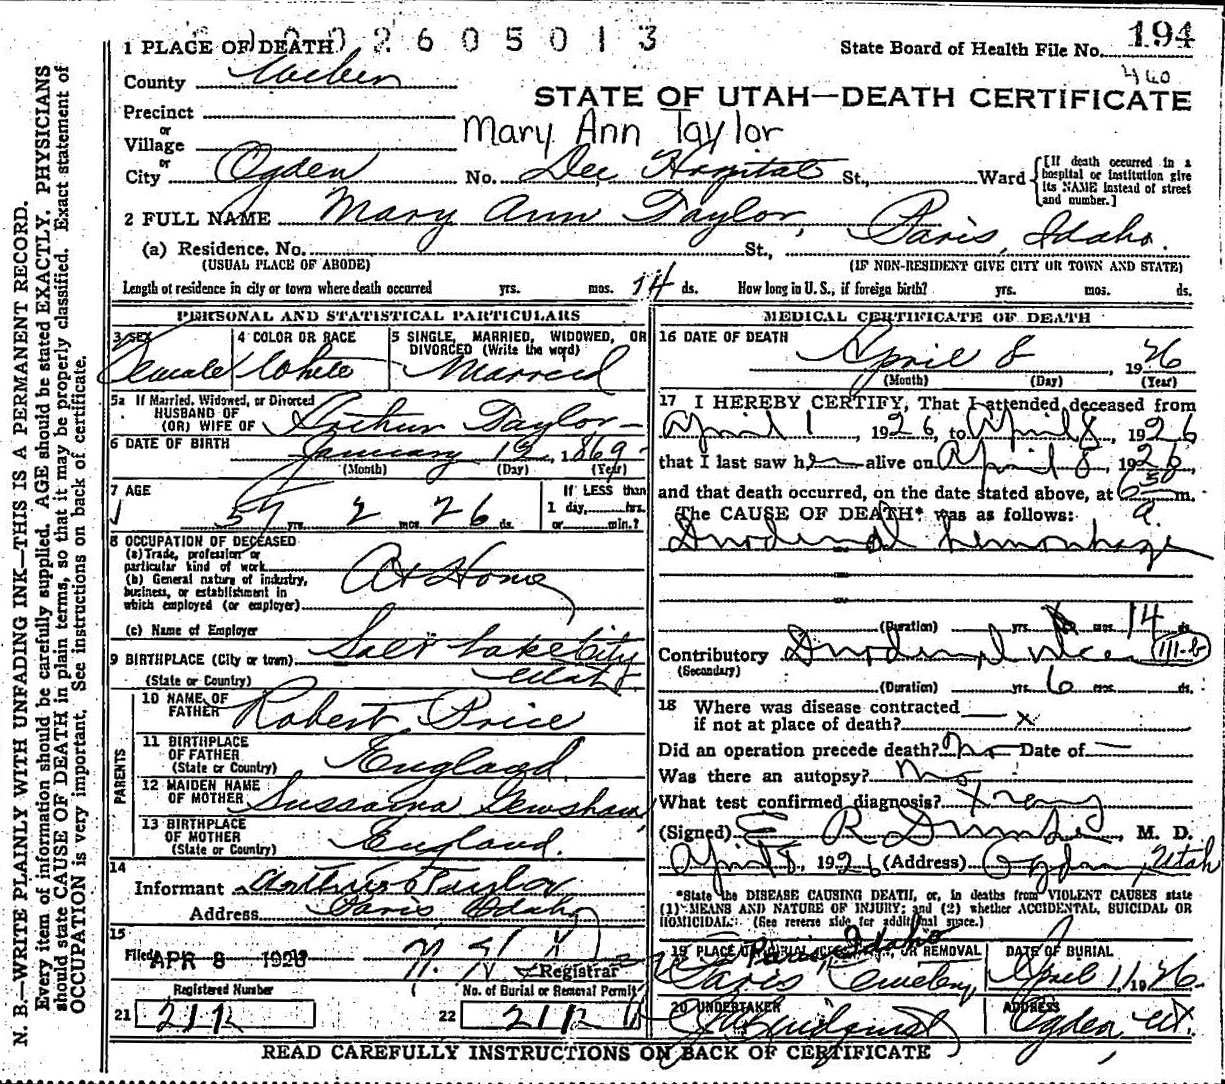 2605013
1 PLACE OF DEATH
State Board of Health File No. 194
County Weber
460
STATE OF UTAH—DEATH CERTIFICATE
Precinct
or
Village
Mary Ann Taylor
or
City Ogden No. Dee Hospital St., Ward
[If death occurred in a
hospital or institution give
its NAME instead of street
and number.]
2 FULL NAME Mary Ann Taylor, Paris, Idaho.
(a) Residence, No. St.,
(USUAL PLACE OF ABODE) (IF NON-RESIDENT GIVE CITY OR TOWN AND STATE)
Length of residence in city or town where death occurred yrs. mos. 14 ds. How long in U. S., if foreign birth? yrs. mos. ds.
PERSONAL AND STATISTICAL PARTICULARS
3 SEX
Female
4 COLOR OR RACE
White
5 SINGLE, MARRIED, WIDOWED, OR
DIVORCED (Write the word)
Married
5a If Married, Widowed, or Divorced
HUSBAND OF
(OR) WIFE OF Arthur Taylor
6 DATE OF BIRTH January 12, 1869
(Month) (Day) (Year)
7 AGE
57 yrs. 2 mos. 26 ds.
If LESS than
1 day, hrs.
or min.?
8 OCCUPATION OF DECEASED
(a) Trade, profession or
particular kind of work
(b) General nature of industry,
business, or establishment in
which employed (or employer)
At Home
(c) Name of Employer
9 BIRTHPLACE (City or town) Salt Lake City
(State or Country) Utah
PARENTS
10 NAME OF
FATHER Robert Price
11 BIRTHPLACE
OF FATHER
(State or Country) England
12 MAIDEN NAME
OF MOTHER Sussanna
13 BIRTHPLACE
OF MOTHER
(State or Country) England.
14
Informant Arthur Taylor
Address Paris Idaho
15
Filed APR 8 1926
Registrar
Registered Number
21 212
No. of Burial or Removal Permit
22 212
MEDICAL CERTIFICATE OF DEATH
16 DATE OF DEATH
April 8, 1926
(Month) (Day) (Year)
17 I HEREBY CERTIFY, That I attended deceased from
April 1, 1926, to April 8, 1926
that I last saw her alive on April 8, 1926,
and that death occurred, on the date stated above, at 650 m.
a.
The CAUSE OF DEATH* was as follows:
Duodenal hemorrhage
(Duration) yrs. mos. 14
Contributory Duodenal ulcer
III-b
(Secondary)
(Duration) yrs. 6 mos. ds.
18 Where was disease contracted
if not at place of death? — x
Did an operation precede death? no Date of —
Was there an autopsy? no
What test confirmed diagnosis? X ray
(Signed) E R Dumke, M. D.
April 8, 1926 (Address) Ogden, Utah
*State the DISEASE CAUSING DEATH, or, in deaths from VIOLENT CAUSES state
(1) MEANS AND NATURE OF INJURY; and (2) whether ACCIDENTAL, SUICIDAL OR
HOMICIDAL. (See reverse side for additional space.)
19 PLACE OF BURIAL, OR REMOVAL
Paris, Idaho
Paris Cemetery,
DATE OF BURIAL
April 11, 1926.
20 UNDERTAKER
Lindquist
ADDRESS
Ogden Ut.
READ CAREFULLY INSTRUCTIONS ON BACK OF CERTIFICATE
N. B.—WRITE PLAINLY WITH UNFADING INK—THIS IS A PERMANENT RECORD.
Every item of information should be carefully supplied. AGE should be stated EXACTLY. PHYSICIANS
should state CAUSE OF DEATH in plain terms, so that it may be properly classified. Exact statement of
OCCUPATION is very important. See instructions on back of certificate.